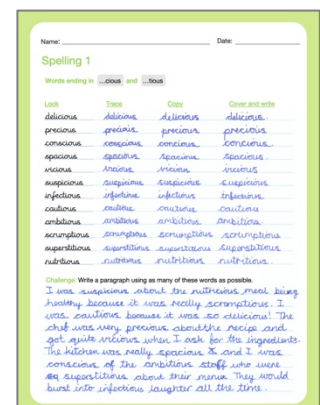 Name: Date:
Spelling 1
Words ending in ...cious and ...tious
Look Trace Copy Cover and write
delicious delicious delicious delicious.
precious precious precious precious
conscious conscious concious concious.
spacious spacious spacious spacious.
vicious vicious vicious vicious
suspicious suspicious suspicious suspicious
infectious infectious infectious infectious.
cautious cautious cautious cautious
ambitious ambitious ambitious ambitious.
scrumptious scrumptious scrumptious scrumptious
superstitious superstitious superstitious superstitious.
nutritious nutritious nutritious nutritious.
Challenge Write a paragraph using as many of these words as possible.
I was suspicious about the nutricious meal being
healthy because it was really scromptious. I
was cautious because it was so delicious! The
chef was very precious about the recipe and
got quite vicious when I ask for the ingredients.
The kitchen was really spacious and I was
conscious of the ambitious staff who were
superstitious about their menu. They would
burst into infectious laughter all the time.